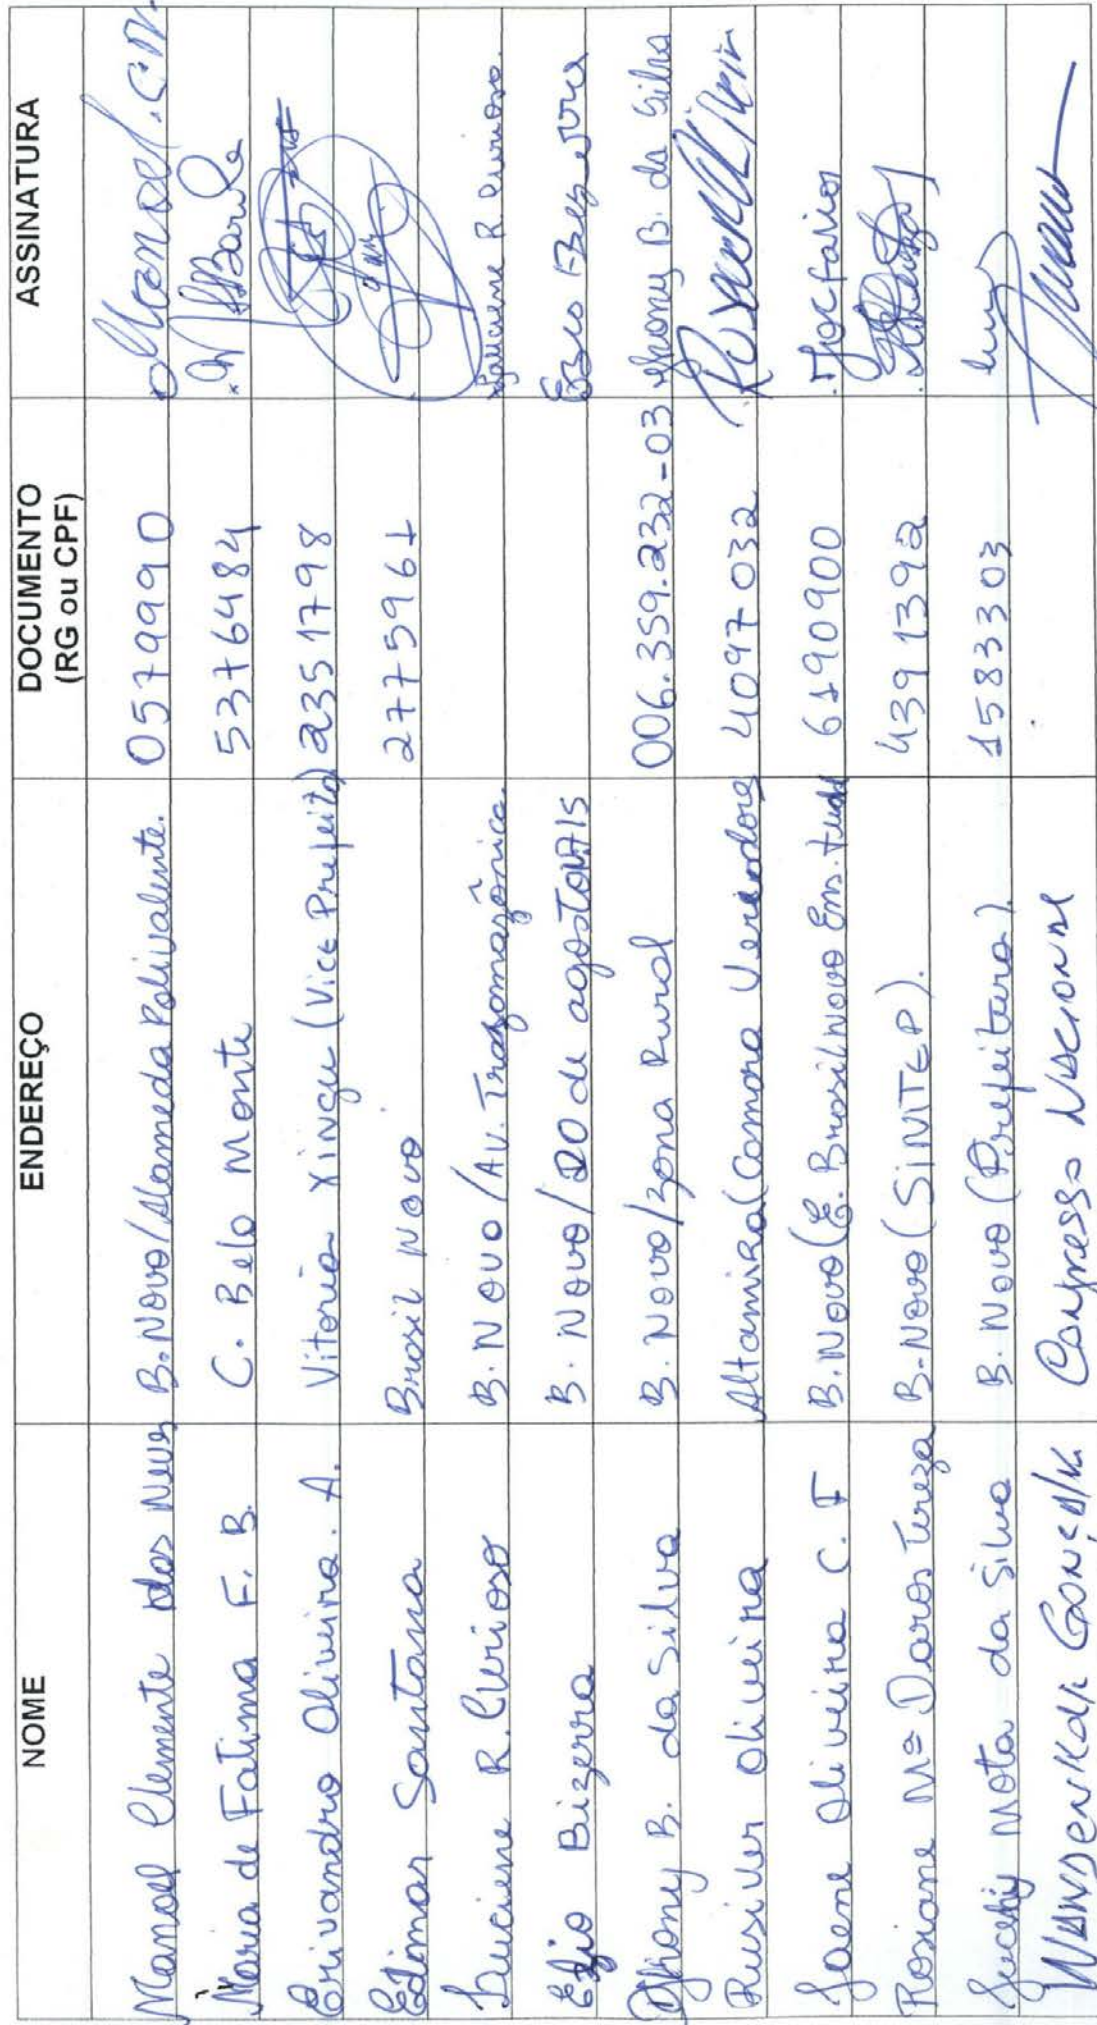 NOME ENDEREÇO DOCUMENTO (RG ou CPF) ASSINATURA
Manoel Clemente das Neves B. Novo/Alameda Polivalente. 0579990 Manoel C.N.
Maria de Fatima F. B. C. Belo Monte 5376484
Erivandro Oliveira. A. Vitoria Xingu (Vice Prefeito) 2351798
Edimar Santana Brasil Novo 2775961
Luciene R. Curioso B. Novo/Av. Transamazônica. Luciene R. Curioso.
Ezio Bizerra B. Novo/20 de agosto Ezio Bezerra
Dhony B. da Silva B. Novo/zona Rural 006.359.232-03 Dhony B. da Silva
Rusiver Oliveira Altamira (Camara Vereadores 4097032
Joene Oliveira C. F B. Novo (E. Brasil Novo Em. 6190900
Rosiane Mª Daros Tereza B. Novo (SINTEP). 4391392
Lucely Mota da Silva B. Novo (Prefeitura). 1583303 Lucy
Congresso Nacional